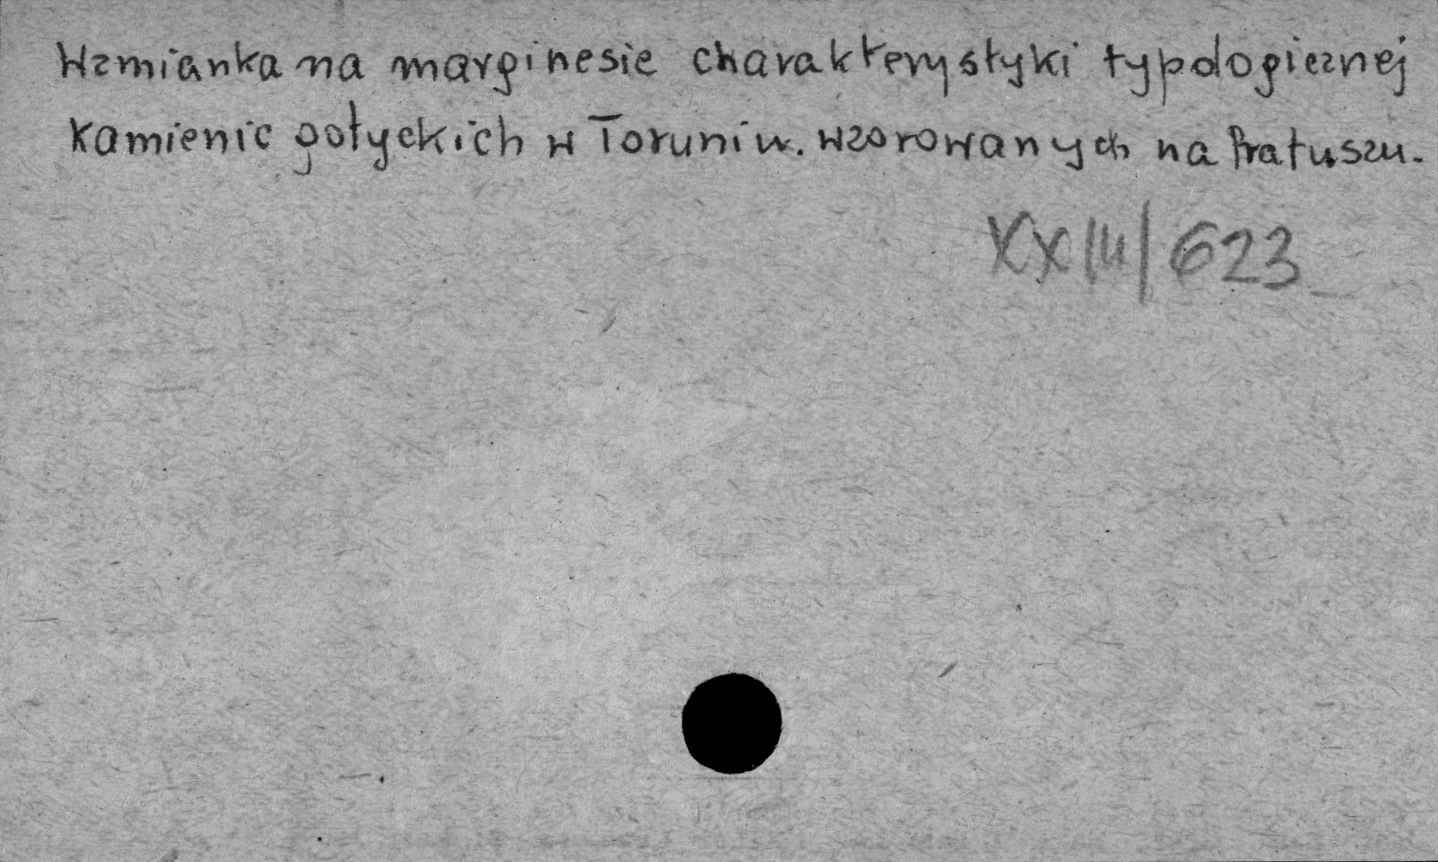 Wzmianka na marginesie charakterystyki typologicznej
kamienic gotyckich w Toruniu. wzorowanych na Ratuszu.
XXIII/623